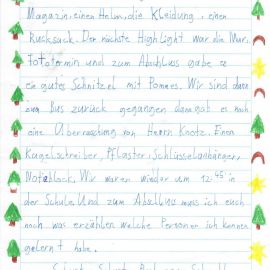 Magazin, einen Helm, die Kleidung, einen
Rucksack. Der nächste Highlight war die
Fototermin und zum Abschluss gabe es
ein gutes Schnitzel mit Pommes. Wir sind dann
zum Bus zurück gegangen dann gab es noch
eine Überraschung von Herrn Knotz. Einen
Kugelschreiber, Pflaster, Schlüsselanhänger,
Notizblock. Wir waren wieder um 12:45 in
der Schule. Und zum Abschluss muss ich euch
noch was erzählen welche Personen ich kennen
gelernt habe.